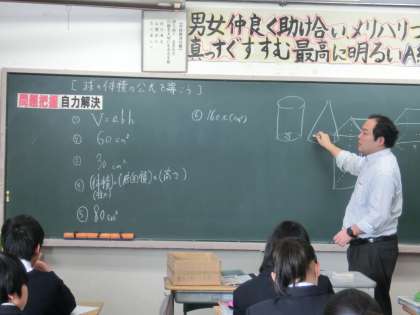 男女仲良く助け合い、メリハリつ
真っすぐすすむ最高に明るいA
[球の体積の公式を導こう]
問題把握 自力解決
① V=abh
② 60cm³
③ 30cm³
④ (体積)=(底面積)×(高さ)
⑤ 80cm³
⑥ 160π(cm³)